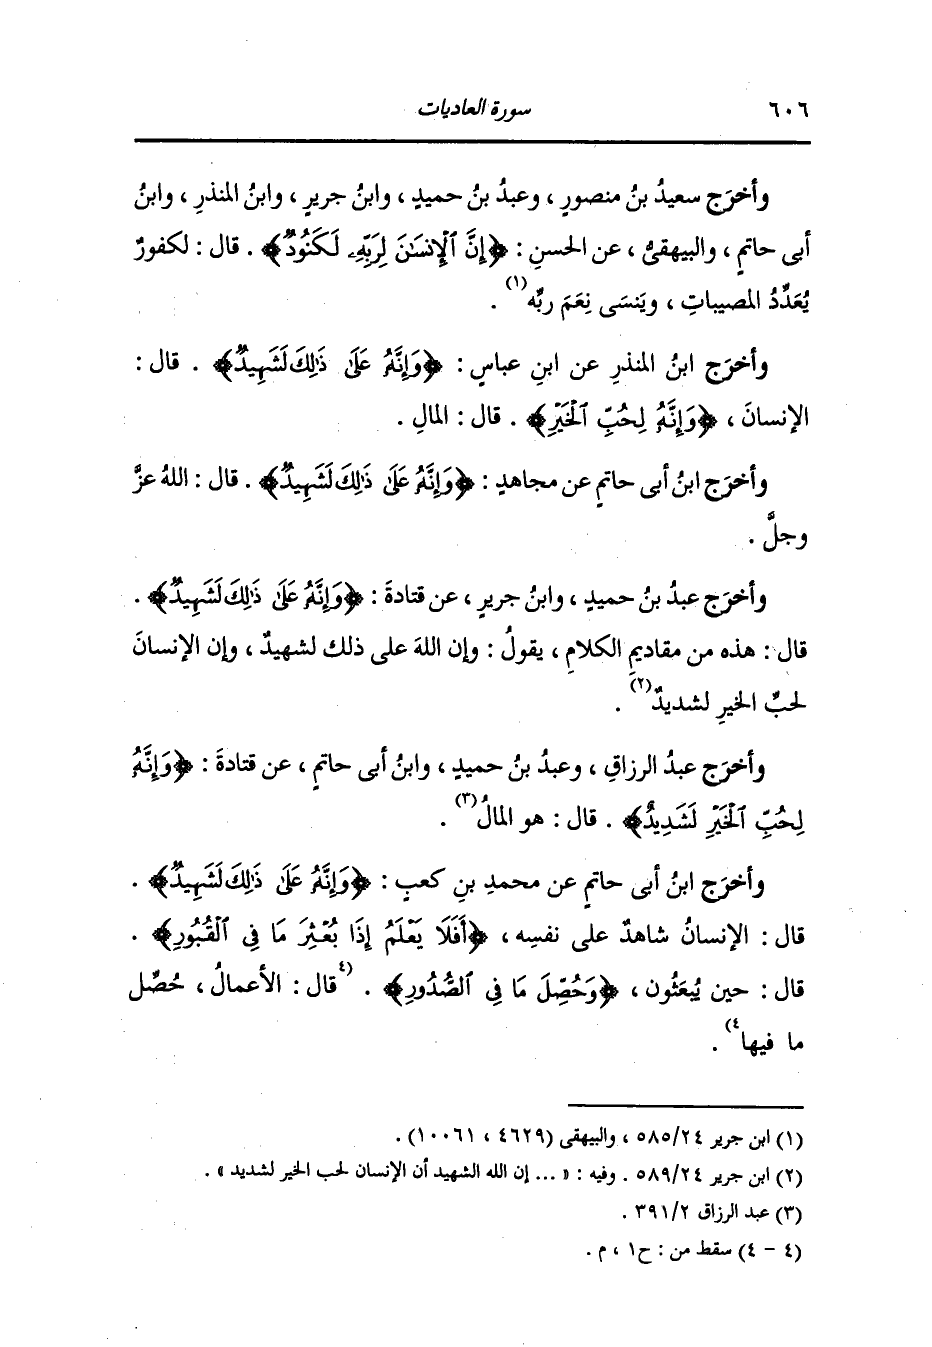 ٦٠٦ سورة العاديات
وأخرَج سعيدُ بنُ منصورٍ ، وعبدُ بنُ حميدٍ ، وابنُ جريرٍ ، وابنُ المنذرِ ، وابنُ
أبى حاتمٍ ، والبيهقىُّ ، عن الحسنِ : ﴿إِنَّ ٱلْإِنسَـٰنَ لِرَبِّهِۦ لَكَنُودٌ﴾ . قال : لكفورٌ
يُعَدِّدُ المصيباتِ ، ويَنسَى نِعَمَ ربِّه(١) .
وأخرَج ابنُ المنذرِ عن ابنِ عباسٍ : ﴿وَإِنَّهُۥ عَلَىٰ ذَٰلِكَ لَشَهِيدٌ﴾ . قال :
الإنسانَ ، ﴿وَإِنَّهُۥ لِحُبِّ ٱلْخَيْرِ﴾ . قال : المالِ .
وأخرَج ابنُ أبى حاتمٍ عن مجاهدٍ : ﴿وَإِنَّهُۥ عَلَىٰ ذَٰلِكَ لَشَهِيدٌ﴾ . قال : اللهُ عزَّ
وجلَّ .
وأخرَج عبدُ بنُ حميدٍ ، وابنُ جريرٍ ، عن قتادةَ : ﴿وَإِنَّهُۥ عَلَىٰ ذَٰلِكَ لَشَهِيدٌ﴾ .
قال : هذه من مقاديمِ الكلامِ ، يقولُ : وإن اللهَ على ذلك لشهيدٌ ، وإن الإنسانَ
لحبِّ الخيرِ لشديدٌ(٢) .
وأخرَج عبدُ الرزاقِ ، وعبدُ بنُ حميدٍ ، وابنُ أبى حاتمٍ ، عن قتادةَ : ﴿وَإِنَّهُۥ
لِحُبِّ ٱلْخَيْرِ لَشَدِيدٌ﴾ . قال : هو المالُ(٣) .
وأخرَج ابنُ أبى حاتمٍ عن محمدِ بنِ كعبٍ : ﴿وَإِنَّهُۥ عَلَىٰ ذَٰلِكَ لَشَهِيدٌ﴾ .
قال : الإنسانُ شاهدٌ على نفسِه ، ﴿أَفَلَا يَعْلَمُ إِذَا بُعْثِرَ مَا فِى ٱلْقُبُورِ﴾ .
قال : حين يُبعَثُون ، ﴿وَحُصِّلَ مَا فِى ٱلصُّدُورِ﴾ . (٤قال : الأعمالُ ، حُصِّل
ما فيها٤) .
(١) ابن جرير ٥٨٥/٢٤ ، والبيهقى (٤٦٢٩ ، ١٠٠٦١) .
(٢) ابن جرير ٥٨٩/٢٤ . وفيه : « ... إن الله الشهيد أن الإنسان لحب الخير لشديد » .
(٣) عبد الرزاق ٣٩١/٢ .
(٤ - ٤) سقط من : ح١ ، م .